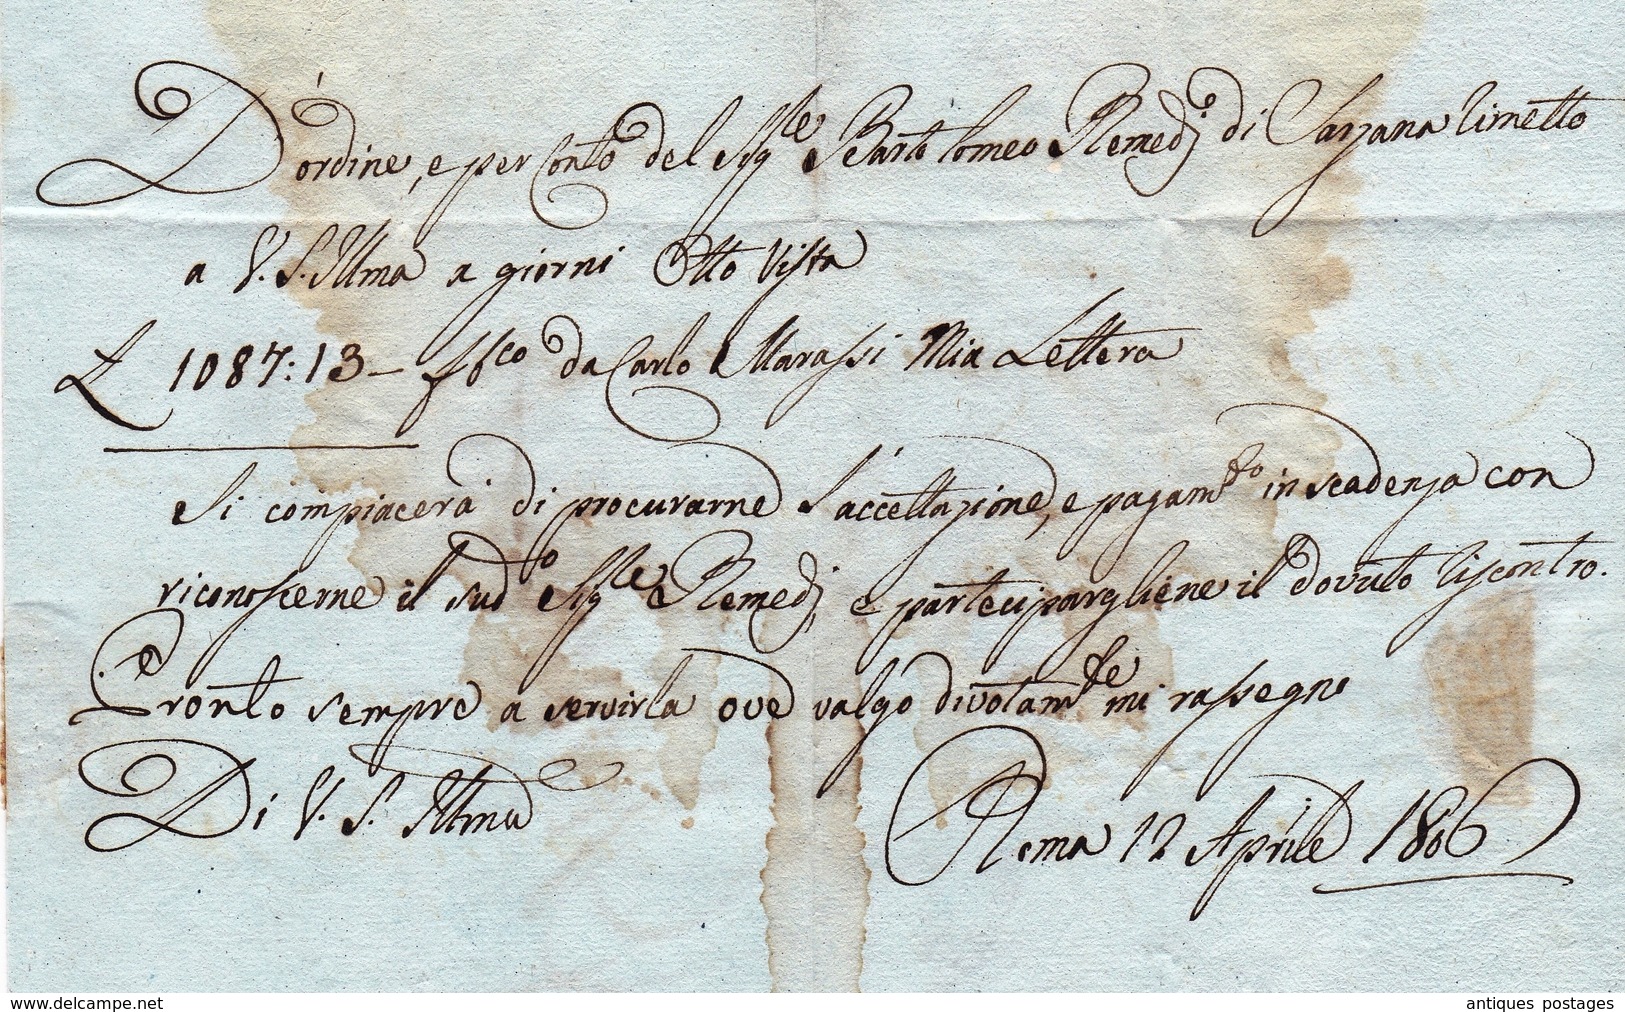 D'ordine, e per Conto del Sigre Bartolomeo Remedj di Sarzana rimetto
a V. S. Illma a giorni Otto Vista
£ 1087:13 – da Carlo Marassi Mia Lettera
Si compiacerà di procurarne l'accettazione, e pagamto in scadenza con
riconoscerne il sudo Sigre Remedj, e partecipargliene il dovuto riscontro.
Pronto sempre a servirla ove valgo divotamte mi rassegno
Di V. S. Illma
Roma 12 Aprile 1806
www.delcampe.net
antiques postages